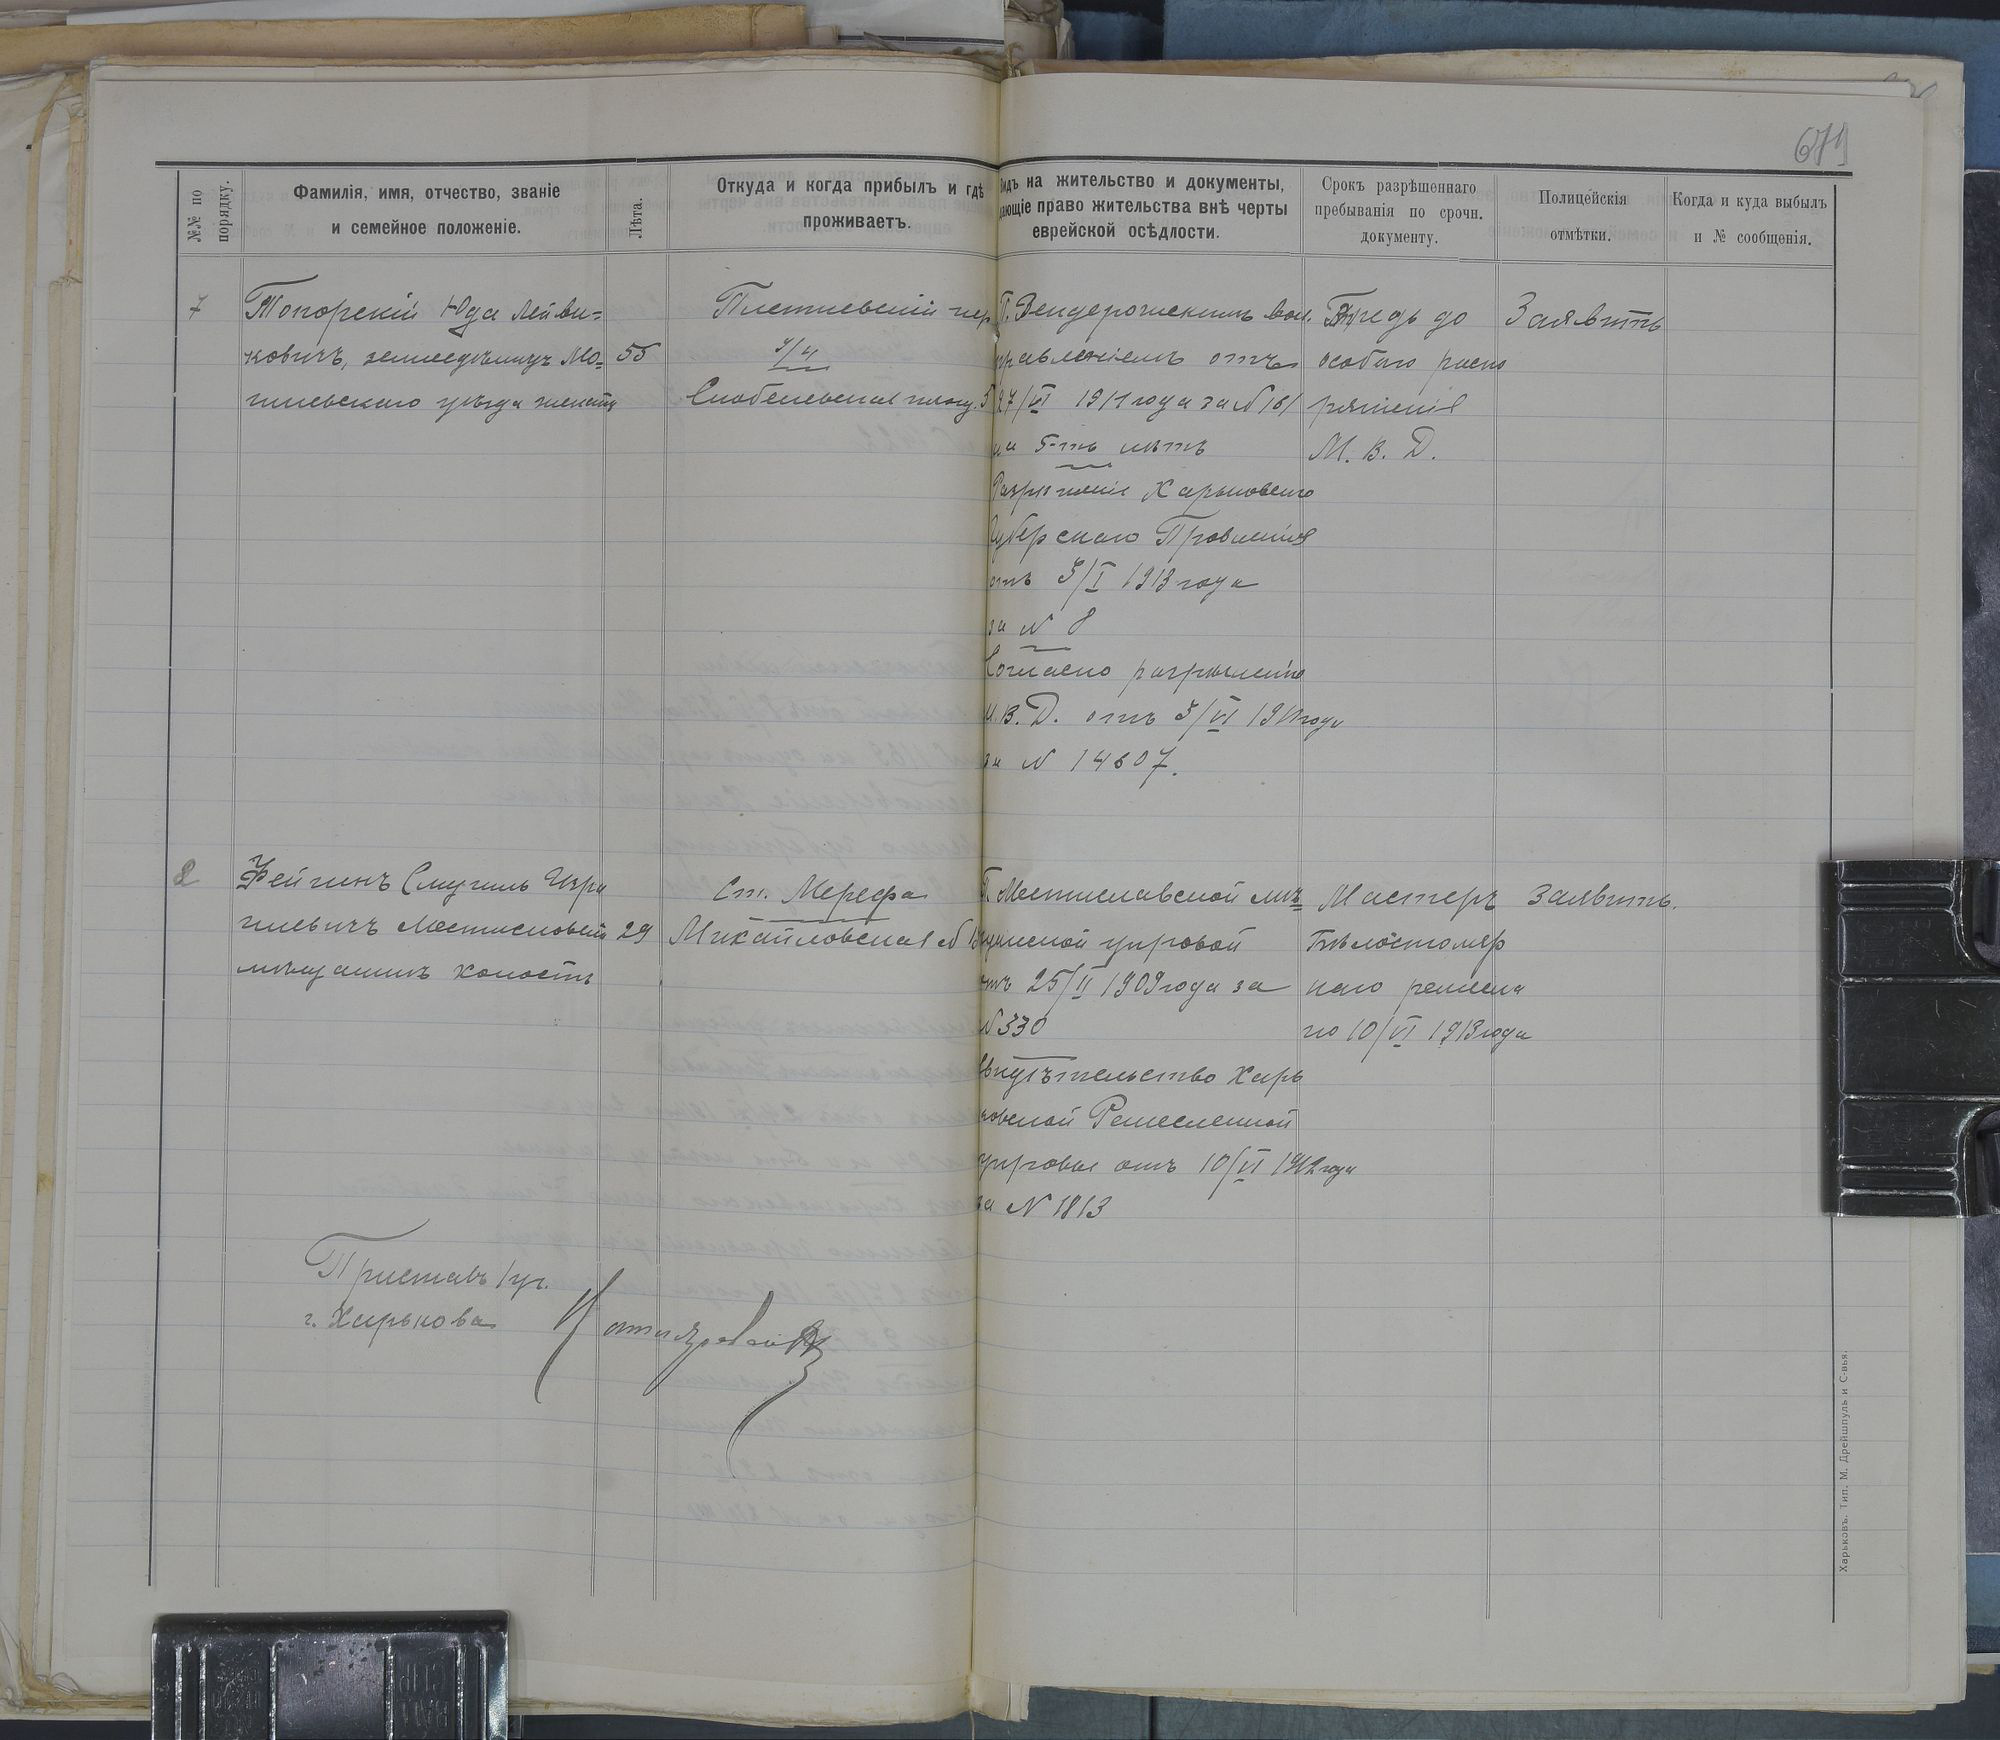 679
№№ по порядку.
Фамилія, имя, отчество, званіе
и семейное положеніе.
Лѣта.
Откуда и когда прибылъ и гдѣ
проживаетъ.
Видъ на жительство и документы,
дающіе право жительства внѣ черты
еврейской осѣдлости.
Срокъ разрѣшеннаго
пребыванія по срочн.
документу.
Полицейскія
отмѣтки.
Когда и куда выбылъ
и № сообщенія.
7
Топорскій Юда Лейви=
ковичъ, земледѣлецъ Мо=
гилевскаго уѣзда женатъ
55
Плетневскій пер
Скобелевская площ. 5
П. Вендерожскимъ вол.
правленіемъ отъ
27/VI 1911 года за № 161
на 5-ть лѣтъ
Разрѣшеніе Харьковскаго
Губерскаго Провленія
отъ 3/I 1913 года
за № 8
Согласно разрѣшенію
М. В. Д. отъ 3/VI 1911 года
за № 14607.
Впредь до
особаго распо
ряженія
М. В. Д.
Заявить
8
Фейгинъ Смуилъ Изра
илевичъ Мстиславскій
мѣщанинъ холостъ
29
Ст. Мерефа
Михайловская №
П. Мстиславской мѣ
щанской управой
отъ 25/II 1909 года за
№ 330
Свидѣтельство Харь
ковской Ремесленной
управы отъ 10/VI 1912 года
за № 1813
Мастеръ
наго ремесла
по 10/VI 1913 года
Заявить.
Приставъ 1 уч.
г. Харькова
Харьковъ. Тип. М. Дрейшпуль и С-вья.